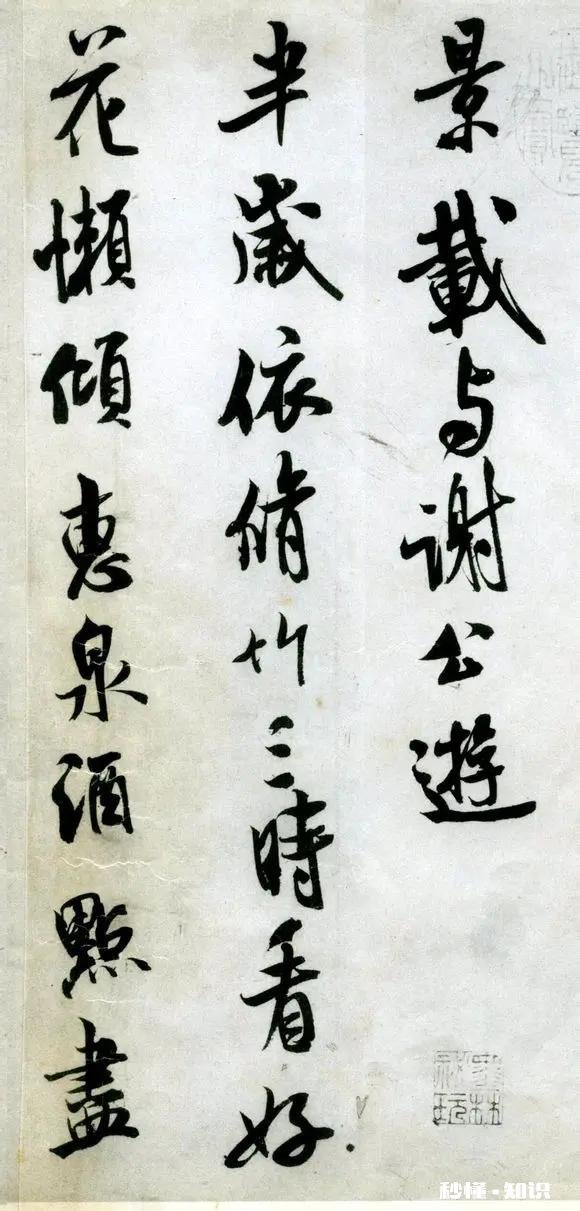 景載与謝公遊
半歲依脩竹三時看好
花懶傾惠泉酒點盡
秒懂·知识